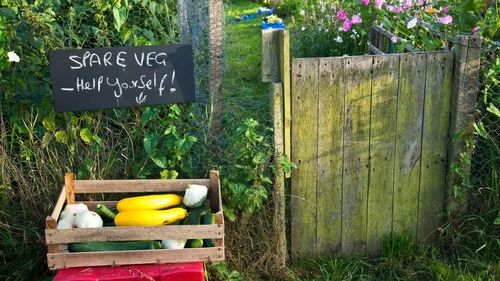 SPARE VEG
- Help Yourself!